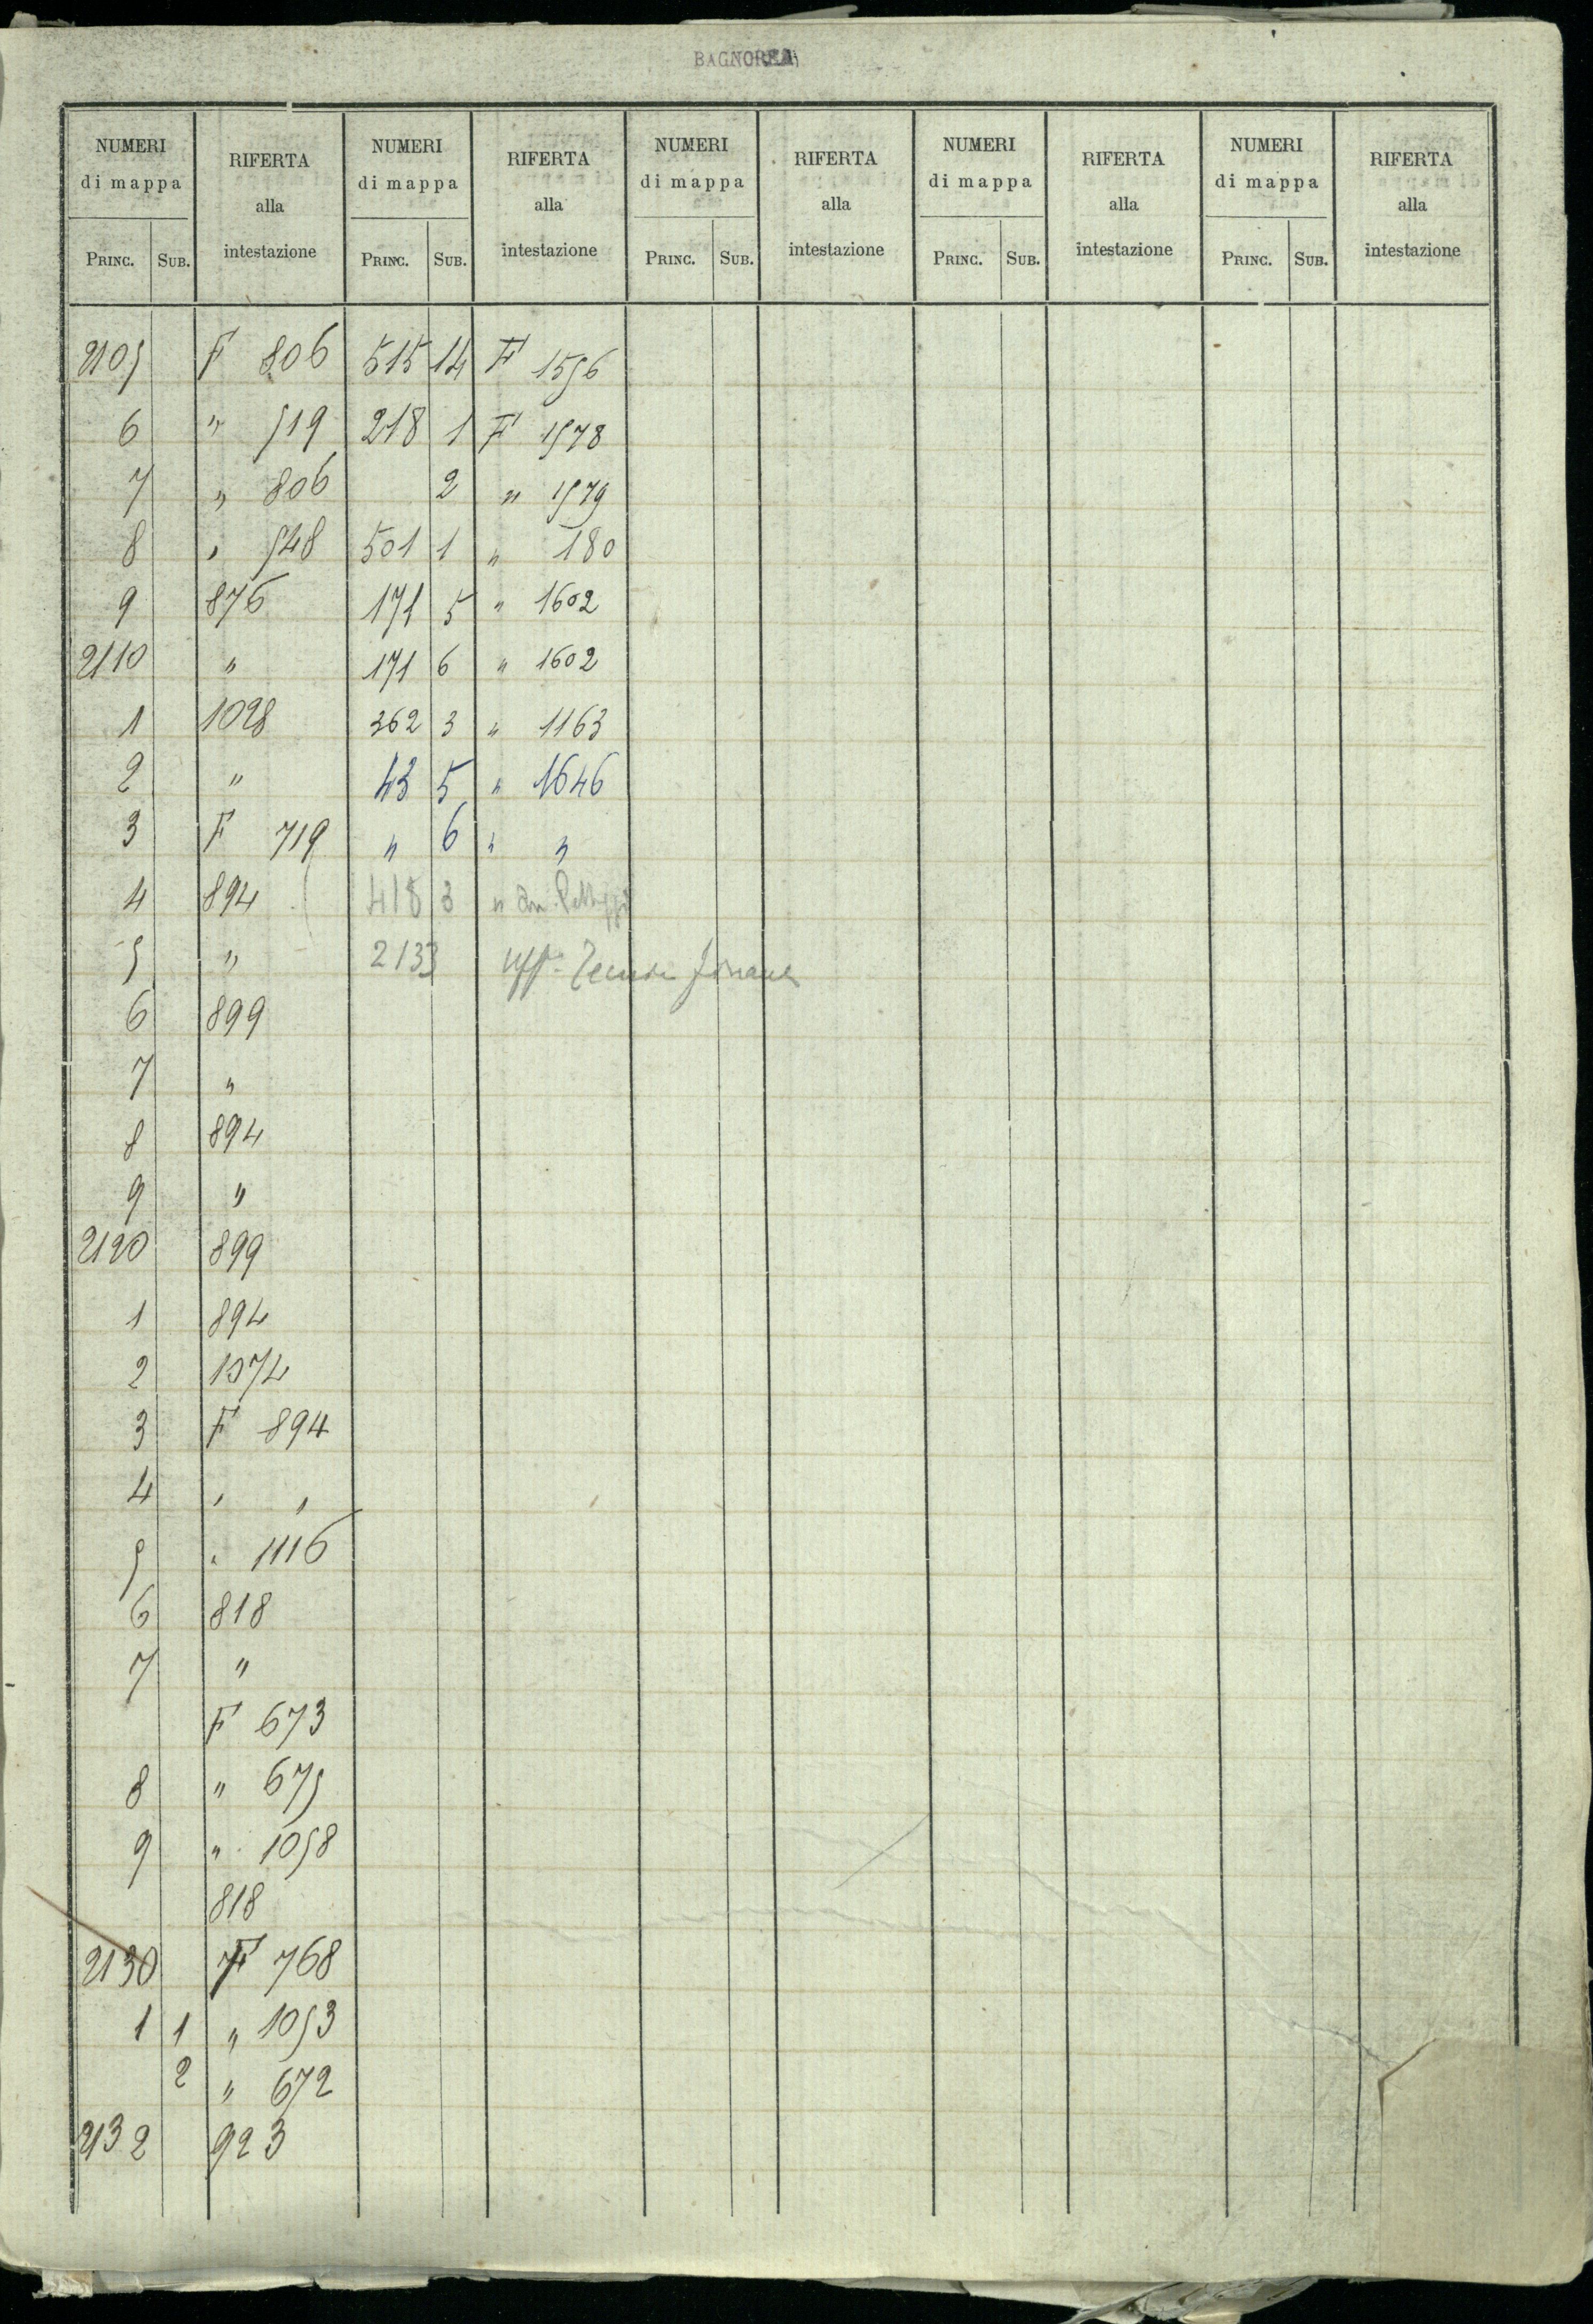 BAGNOREA
NUMERI di mappa RIFERTA alla intestazione NUMERI di mappa RIFERTA alla intestazione NUMERI di mappa RIFERTA alla intestazione NUMERI di mappa RIFERTA alla intestazione NUMERI di mappa RIFERTA alla intestazione
PRINC. SUB. PRINC. SUB. PRINC. SUB. PRINC. SUB. PRINC. SUB.
2105 F 806 515 14 F 1556
6 " 519 218 1 F 1578
7 " 806 2 " 1579
8 " 548 501 1 " 180
9 876 171 5 " 1602
2110 " 171 6 " 1602
1 1028 362 3 " 1163
2 " 43 5 " 1646
3 F 719 " 6 " "
4 894 418 3 "
5 " 2133
6 899
7 "
8 894
9 "
2120 899
1 894
2 1074
3 F 894
4 " "
5 " 1116
6 818
7 "
F 673
8 " 675
9 " 1058
818
2130 F 768
1 1 " 1053
2 " 672
2132 923